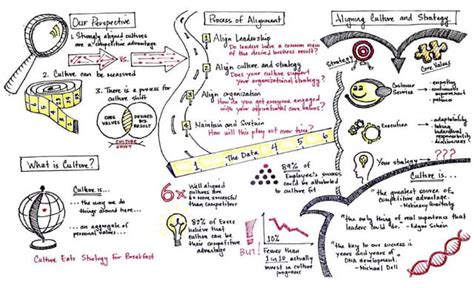 Our Perspective
1. Strongly aligned cultures
are a competitive advantage
2. Culture can be measured
3. There is a process for
culture shift
CORE
VALUES
DESIRED
BIG
RESULT
CULTURE
SHIFT
What is Culture?
Culture is...
... the way we do
things around here...
... an aggregate of
personal values...
Culture Eats Strategy For Breakfast
Process of Alignment
1 Align Leadership
Do leaders have a common view
of the desired business result?
2 Align culture and strategy
Does your culture support
your organizational strategy?
3 Align organization
How do you get everyone engaged
with your core values?
4 Maintain and Sustain
How will this play out over time?
1 The Data 4 5 6
6x
Well aligned cultures
can be more
successful than
competitors
89% of
Employee's success
could be attributed
to culture fit
82% of Execs
believe that
culture can be
their competitive
advantage
BUT!
Fewer than
1 in 10 actually
invest in culture
programs
Aligning Culture and Strategy
Strategy
Core Values
Customer
Service
Execution
Your strategy
???
Culture is...
"the greatest source of
competitive advantage."
"the only thing of real importance that
leaders could do." - Edgar Schein
"the key to our success is
years and years of
DNA development."
- Michael Dell